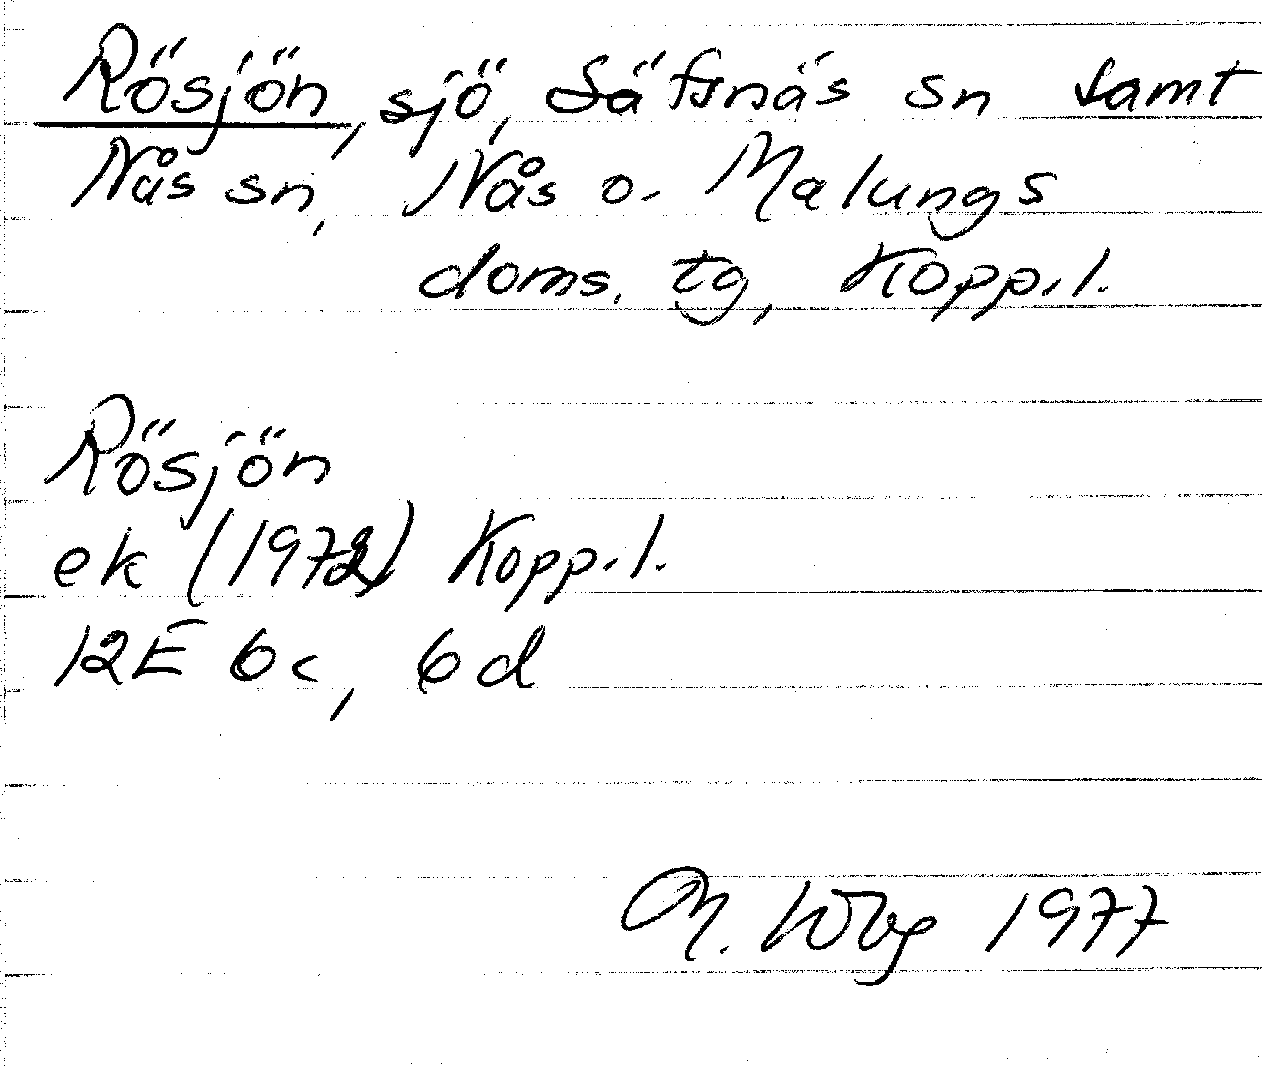 Rösjön, sjö, Säfsnäs sn samt
Nås sn, Nås o. Malungs
doms. tg, Kopp.l.
Rösjön
ek (1972) Kopp.l.
12E 6c, 6d
1977